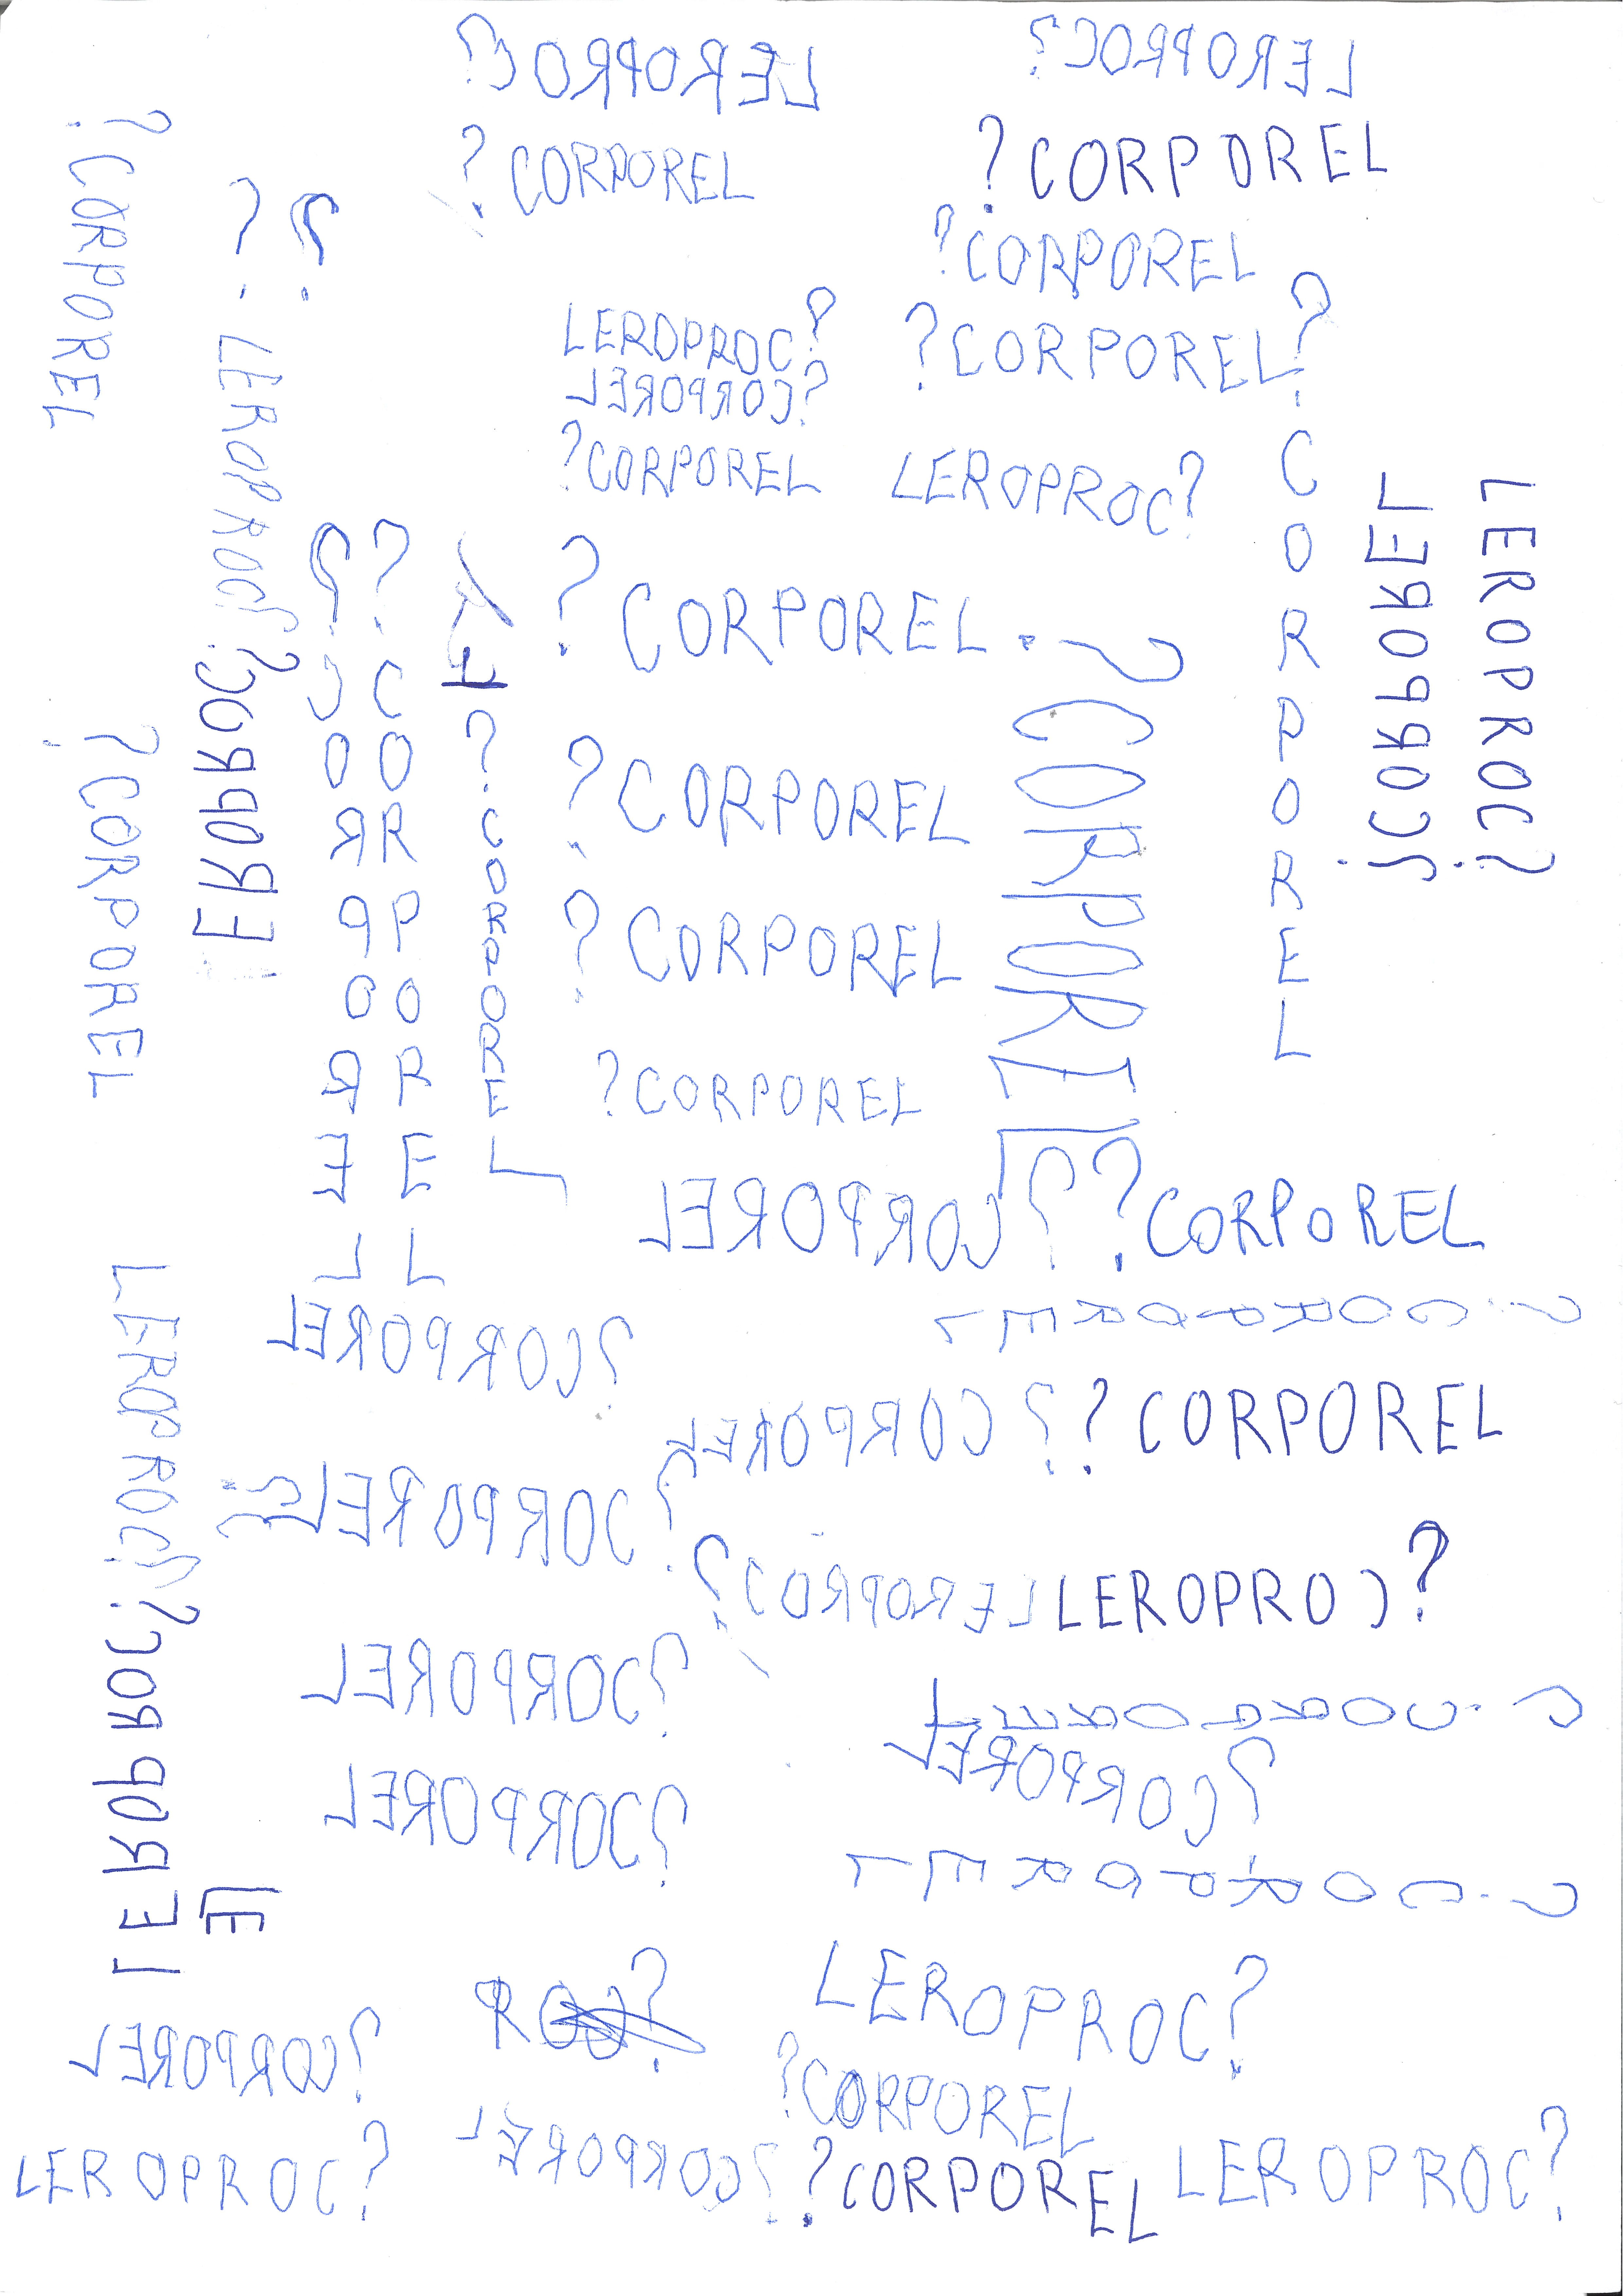 LEROPROC?
LEROPROC?
?CORPOREL
?CORPOREL
?CORPOREL
?CORPOREL
?
?
LEROPROC?
?CORPOREL?
?CORPOREL
?CORPOREL
LEROPROC?
CORPOREL
?CORPOREL
LEROPROC?
LEROPROC?
?CORPOREL
?CORPOREL
?CORPOREL
?CORPOREL
?CORPOREL
?CORPOREL
EROPROC?
?CORPOREL
?CORPOREL
?CORPOREL
?CORPOREL
?CORPOREL
?CORPOREL
?CORPOREL
?CORPOREL
?CORPOREL
?CORPOREL
?CORPOREL
?CORPOREL
LEROPROC?
LEROPROC?
LEROPROC?
LEROPROC?
?CORPOREL
?CORPOREL
?CORPOREL
?CORPOREL
?CORPOREL
LE
ROC?
LEROPROC?
?CORPOREL
?CORPOREL
LEROPROC?
?CORPOREL
?CORPOREL
LEROPROC?